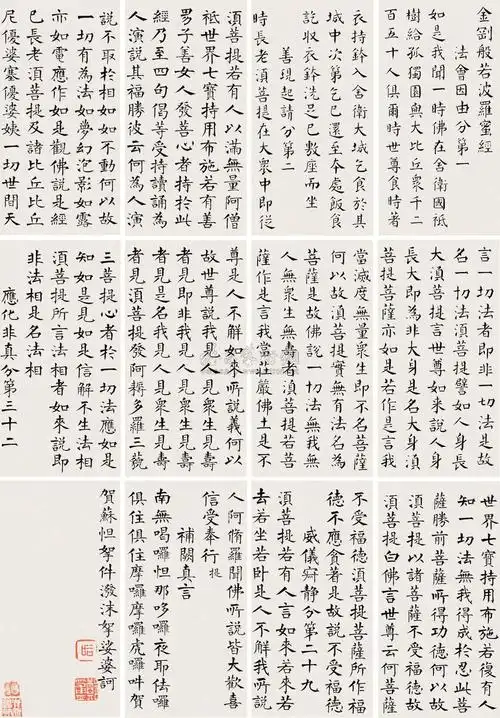 金剛般若波羅蜜經
法會因由分第一
如是我聞一時佛在舍衛國祇
樹給孤獨園與大比丘眾千二
百五十人俱爾時世尊食時著
衣持鉢入舍衛大城乞食於其
城中次第乞已還至本處飯食
訖收衣鉢洗足已敷座而坐
善現起請分第二
時長老須菩提在大衆中即從
須菩提若有人以滿無量阿僧
祇世界七寶持用布施若有善
男子善女人發菩心者持於此
經乃至四句偈等受持讀誦為
人演說其福勝彼云何為人演
說不取於相如如不動何以故
一切有為法如夢幻泡影如露
亦如電應作如是觀佛說是經
已長老須菩提及諸比丘比丘
尼優婆塞優婆夷一切世間天
言一切法者即非一切法是故
名一切法須菩提譬如人身長
大須菩提言世尊如來說人身
長大即為非大身是名大身須
菩提菩薩亦如是若作是言我
當滅度無量眾生即不名菩薩
何以故須菩提實無有法名為
菩薩是故佛說一切法無我無
人無眾生無壽者須菩提若菩
薩作是言我當莊嚴佛土是不
尊是人不解如來所說義何以
故世尊說我見人見眾生見壽
者見即非我見人見眾生見壽
者見是名我見人見眾生見壽
者見須菩提發阿耨多羅三藐
三菩提心者於一切法應如是
知如是見如是信解不生法相
須菩提所言法相者如來說即
非法相是名法相
應化非真分第三十二
世界七寶持用布施若復有人
知一切法無我得成於忍此菩
薩勝前菩薩所得功德何以故
須菩提以諸菩薩不受福德故
須菩提白佛言世尊云何菩薩
不受福德須菩提菩薩所作福
德不應貪著是故說不受福德
威儀寂靜分第二十九
須菩提若有人言如來若來若
去若坐若臥是人不解我所說
人阿脩羅聞佛所說皆大歡喜
信受奉行 提
補闕真言
南無喝囉怛那哆囉夜耶佉囉
俱住俱住摩囉摩囉虎囉吽賀
賀蘇怛拏吽潑沫拏娑婆訶